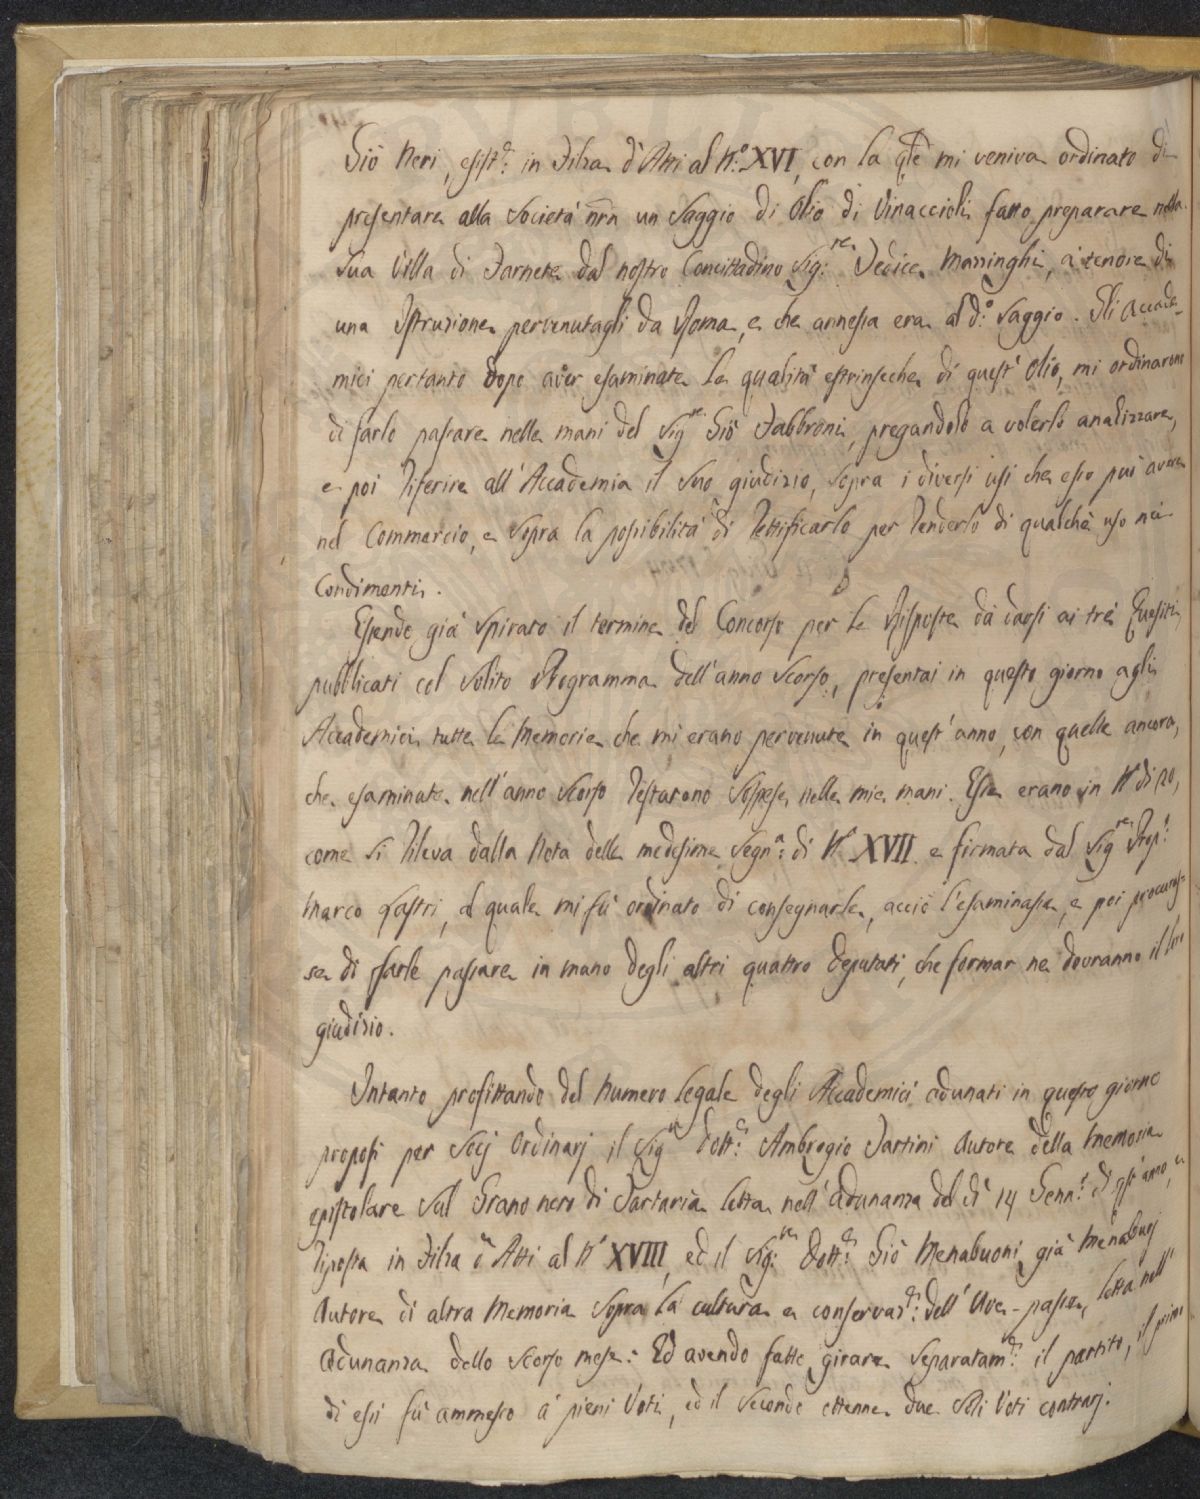 Giō Neri, esist.e in Filza d'Atti al N.o XVI, con la qle mi veniva ordinato di
presentare alla Società nrã un Saggio di Olio di Vinaccioli fatto preparare nella
sua Villa di Farnete dal nostro Concittadino Sig.re Fedice Marringhi, a tenore di
una Istruzione pervenutagli da Roma, e che annessa era al d.o Saggio. Gli Accade-
mici pertanto dopo aver esaminate le qualità estrinseche di quest'Olio, mi ordinarono
di farlo passare nelle mani del Sig.re Giō Fabbroni, pregandolo a volerlo analizzare,
e poi riferire all'Accademia il suo giudizio, sopra i diversi usi che esso può avere
nel Commercio, e sopra la possibilità di rettificarlo per renderlo di qualche uso nei
Condimenti.
Essendo già spirato il termine del Concorso per le Risposte da darsi ai tre Quesiti
pubblicati col solito Programma dell'anno scorso, presentai in questo giorno agli
Accademici tutte le Memorie che mi erano pervenute in quest'anno, con quelle ancora,
che esaminate nell'anno scorso restarono sospese nelle mie mani. Esse erano in N.o di 20,
come si rileva dalla Nota delle medesime segn.a di N.o XVII e firmata dal Sig.re Prop.o
Marco Lastri, al quale mi fù ordinato di consegnarle, acciò l'esaminasse, e poi procuras-
se di farle passare in mano degli altri quattro Deputati, che formar ne dovranno il loro
giudizio.
Intanto profittando del Numero legale degli Accademici adunati in questo giorno
proposi per Socj Ordinarj il Sig.re Dott.e Ambrogio Tartini Autore della Memoria
epistolare sul Grano nero di Tartaria letta nell'Adunanza del dì 14 Genn.o di qst'anno, e
riposta in Filza d'Atti al N.o XVIII, ed il Sig.re Dott.e Giō Menabuoni già Menabuoj
Autore di altra Memoria sopra la cultura e conservaz.e dell'Uva-passa, letta nell'
Adunanza dello scorso mese: Ed avendo fatto girare separatam.e il partito, il primo
di essi fù ammesso a pieni Voti, ed il secondo ottenne due soli Voti contrarj.